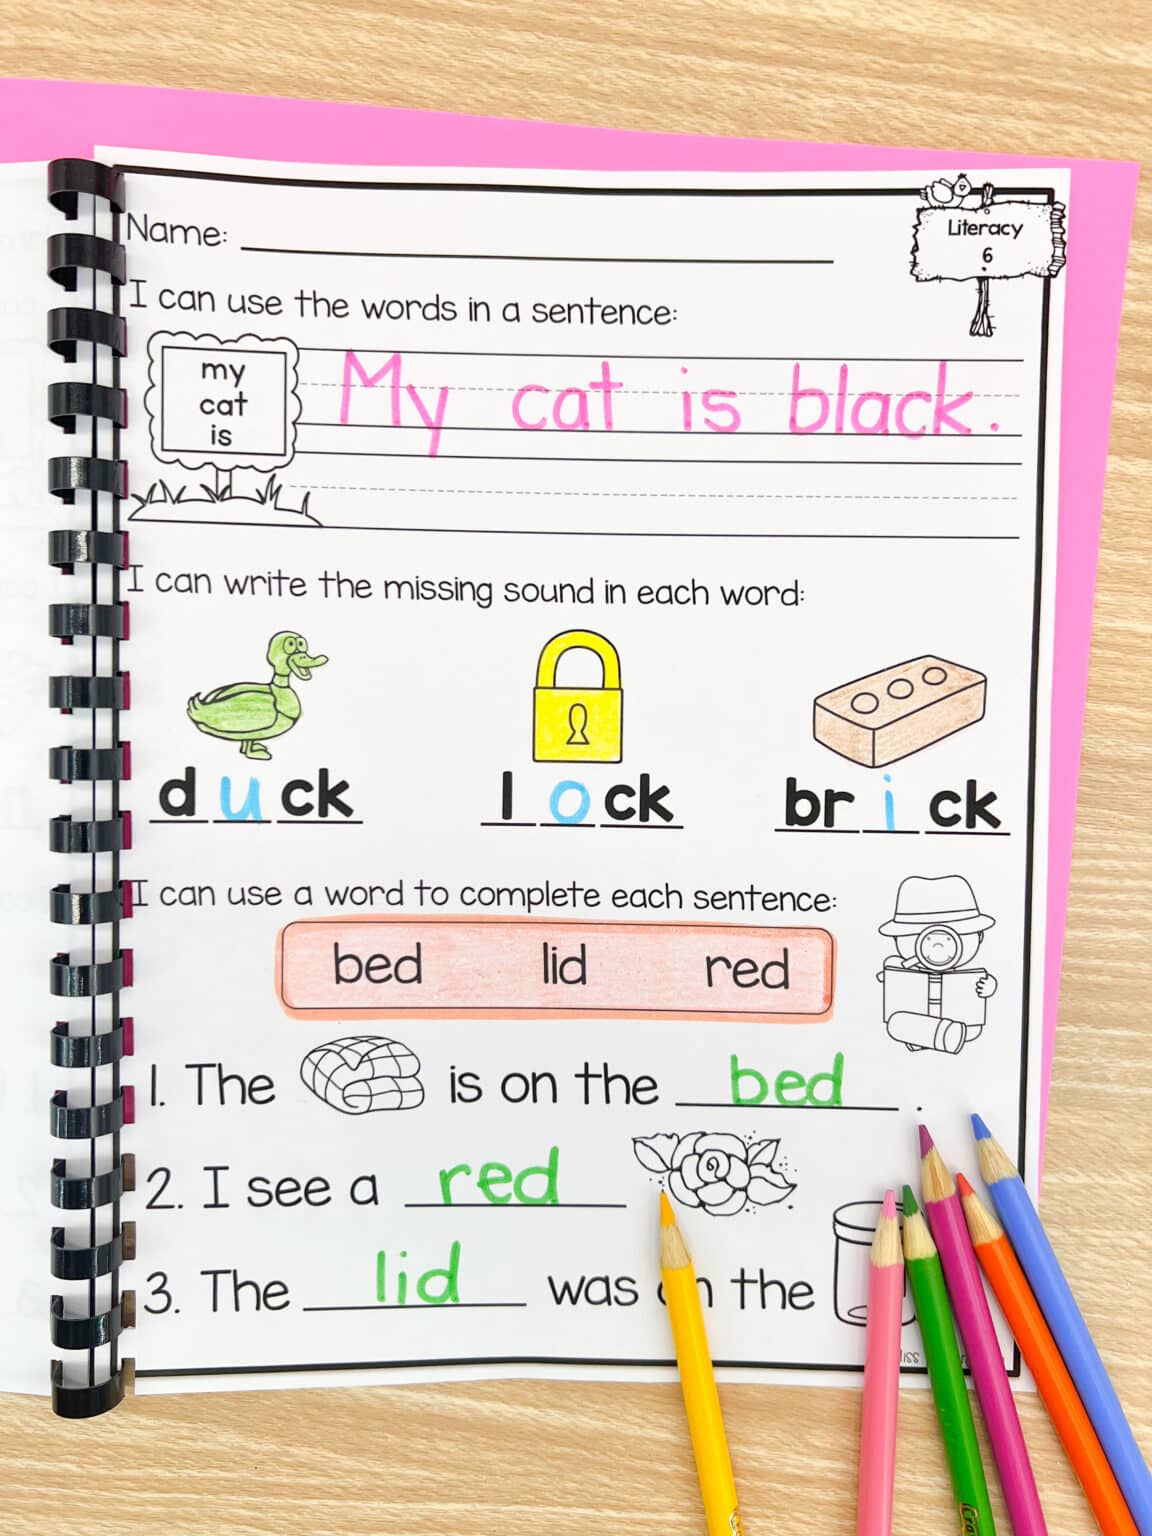 Name:
Literacy
6
I can use the words in a sentence:
my
cat
is
My cat is black.
I can write the missing sound in each word:
d u ck
l o ck
br i ck
I can use a word to complete each sentence:
bed lid red
1. The is on the bed .
2. I see a red
3. The lid was on the